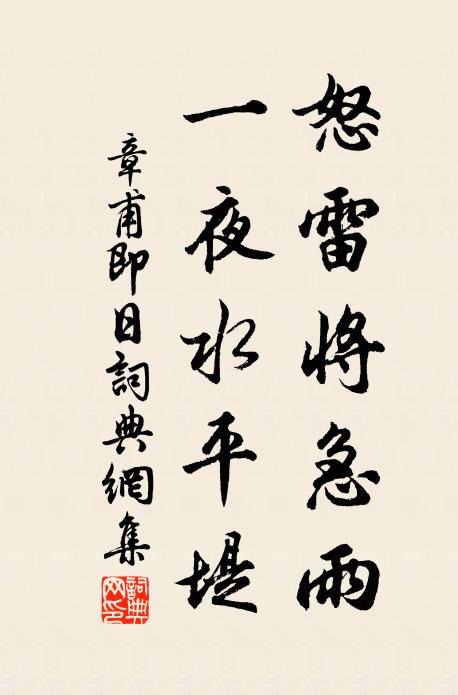 怒雷將急雨
一夜水平堤
章甫即日詞典網集
詞典网印